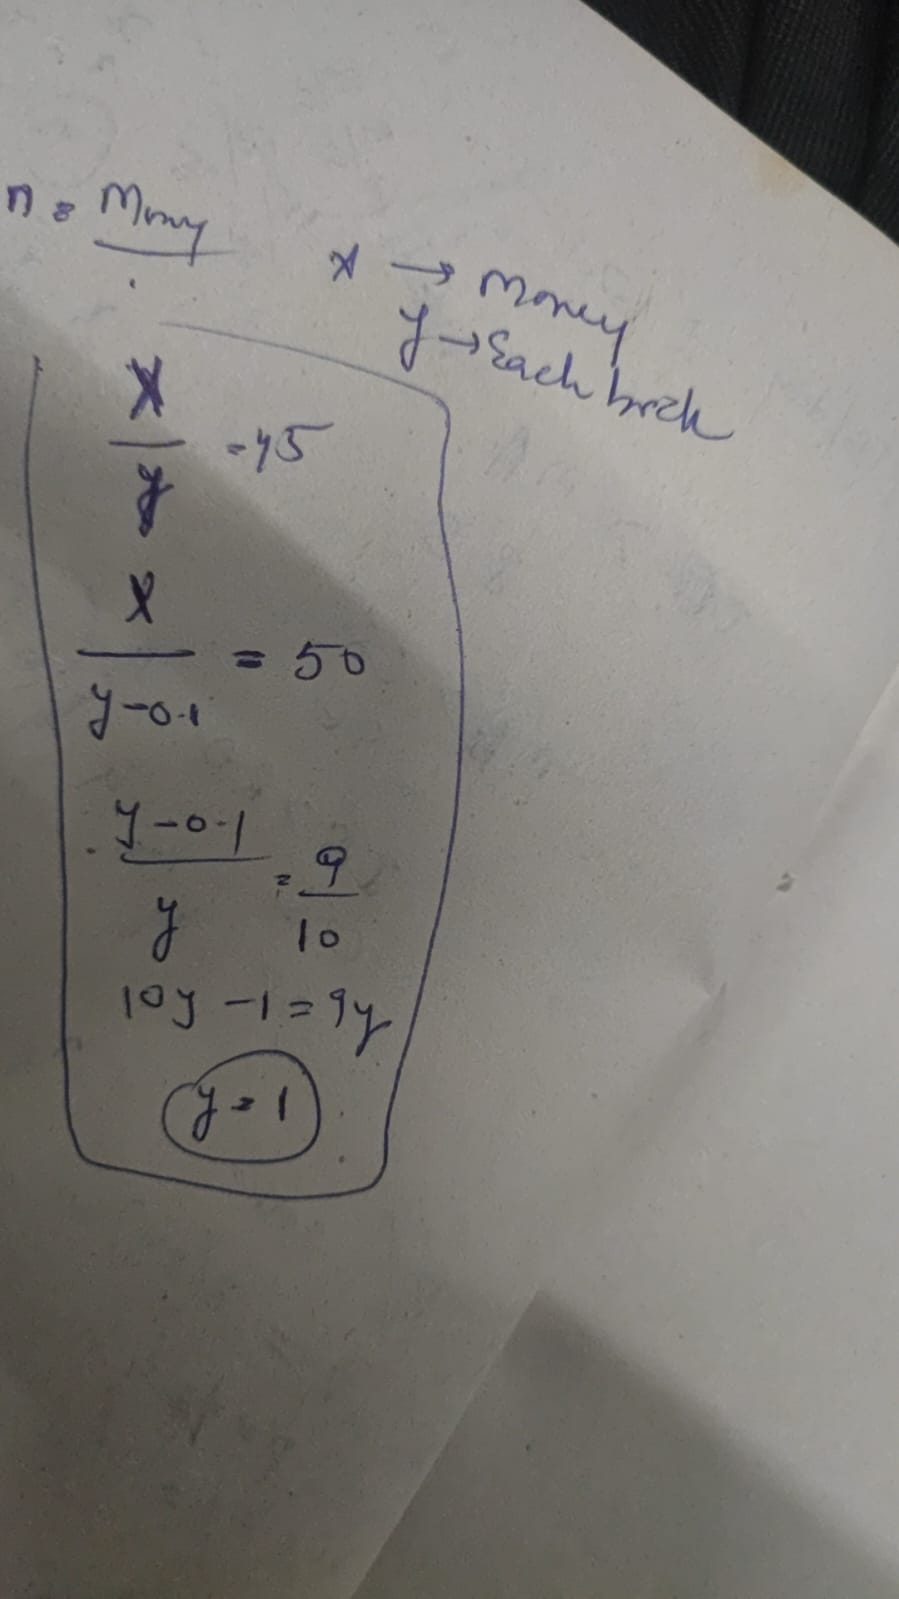 n = Money
.
x → Money
y → Each brck
x
y
= 45
x
y-0.1
= 50
y-0.1
y
= 9
10
10y - 1 = 9y
y = 1